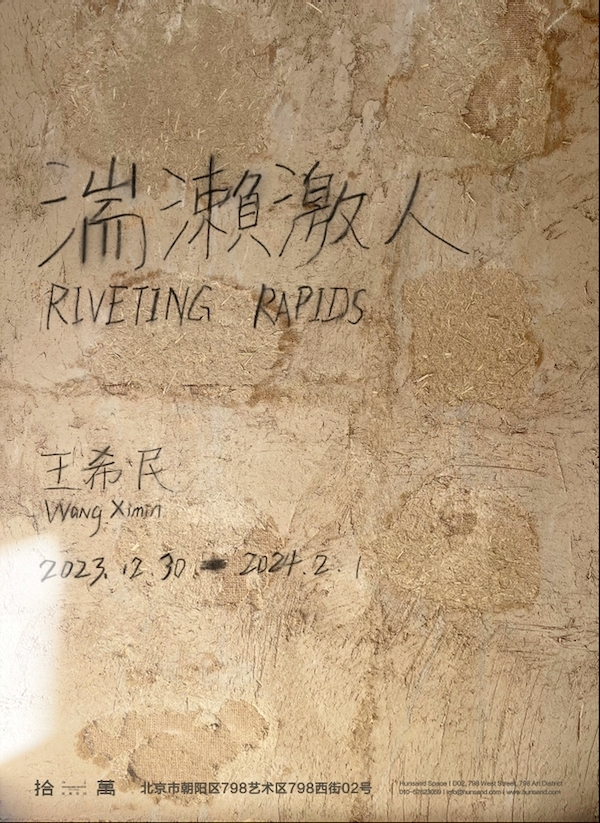 湍瀨激人
RIVETING RAPIDS
王希民
Wang Ximin
2023.12.30.-2024.2.1
拾 萬
北京市朝阳区798艺术区798西街02号
Hunsand Space | D02, 798 West Street, 798 Art District
info@hunsand.com | www.hunsand.com